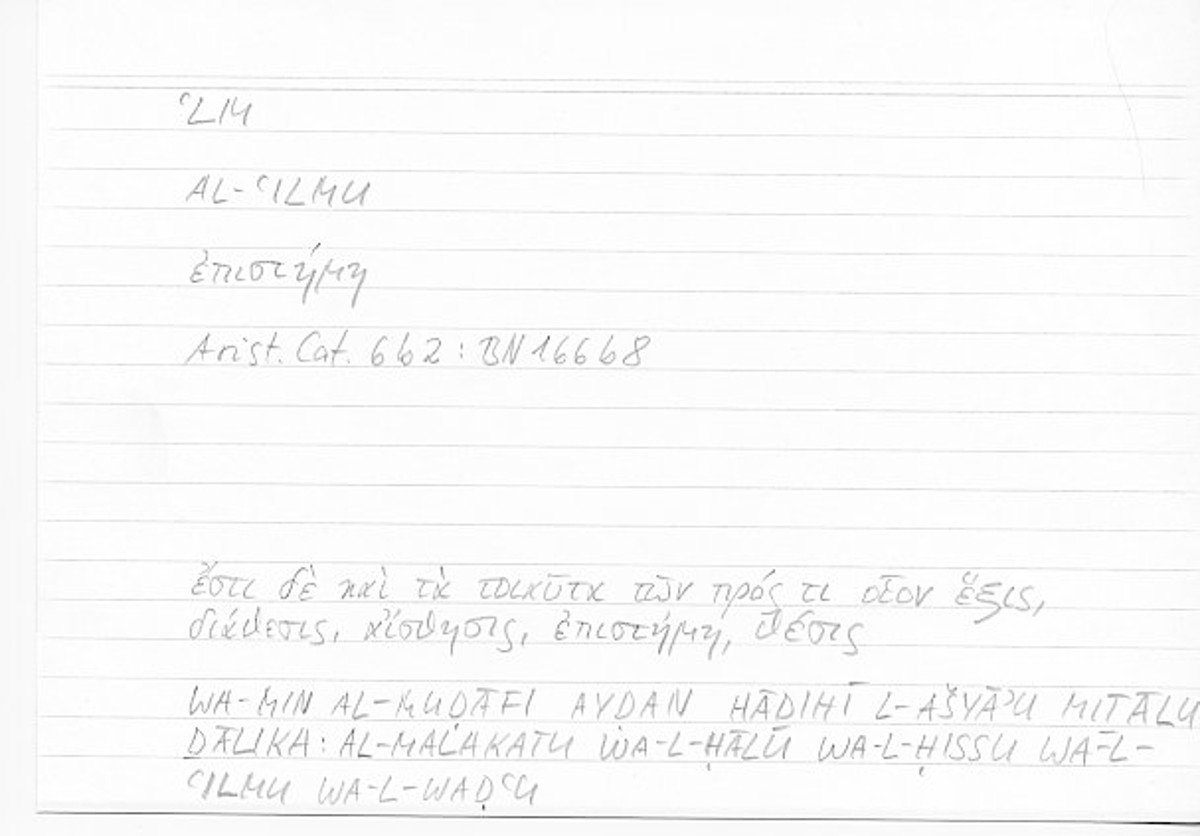 ʿLM
AL-ʿILMU
ἐπιστήμη
Arist. Cat. 6b2 : BN 166b8
ἔστι δὲ καὶ τὰ τοιαῦτα τῶν πρός τι οἷον ἕξις,
διάθεσις, αἴσθησις, ἐπιστήμη, θέσις
WA-MIN AL-MUḌĀFI AYḌAN HĀḎIHĪ L-AŠYĀʾU MIṮĀLU
ḎĀLIKA: AL-MALAKATU WA-L-ḤĀLU WA-L-ḤISSU WA-L-
ʿILMU WA-L-WAḌʿU